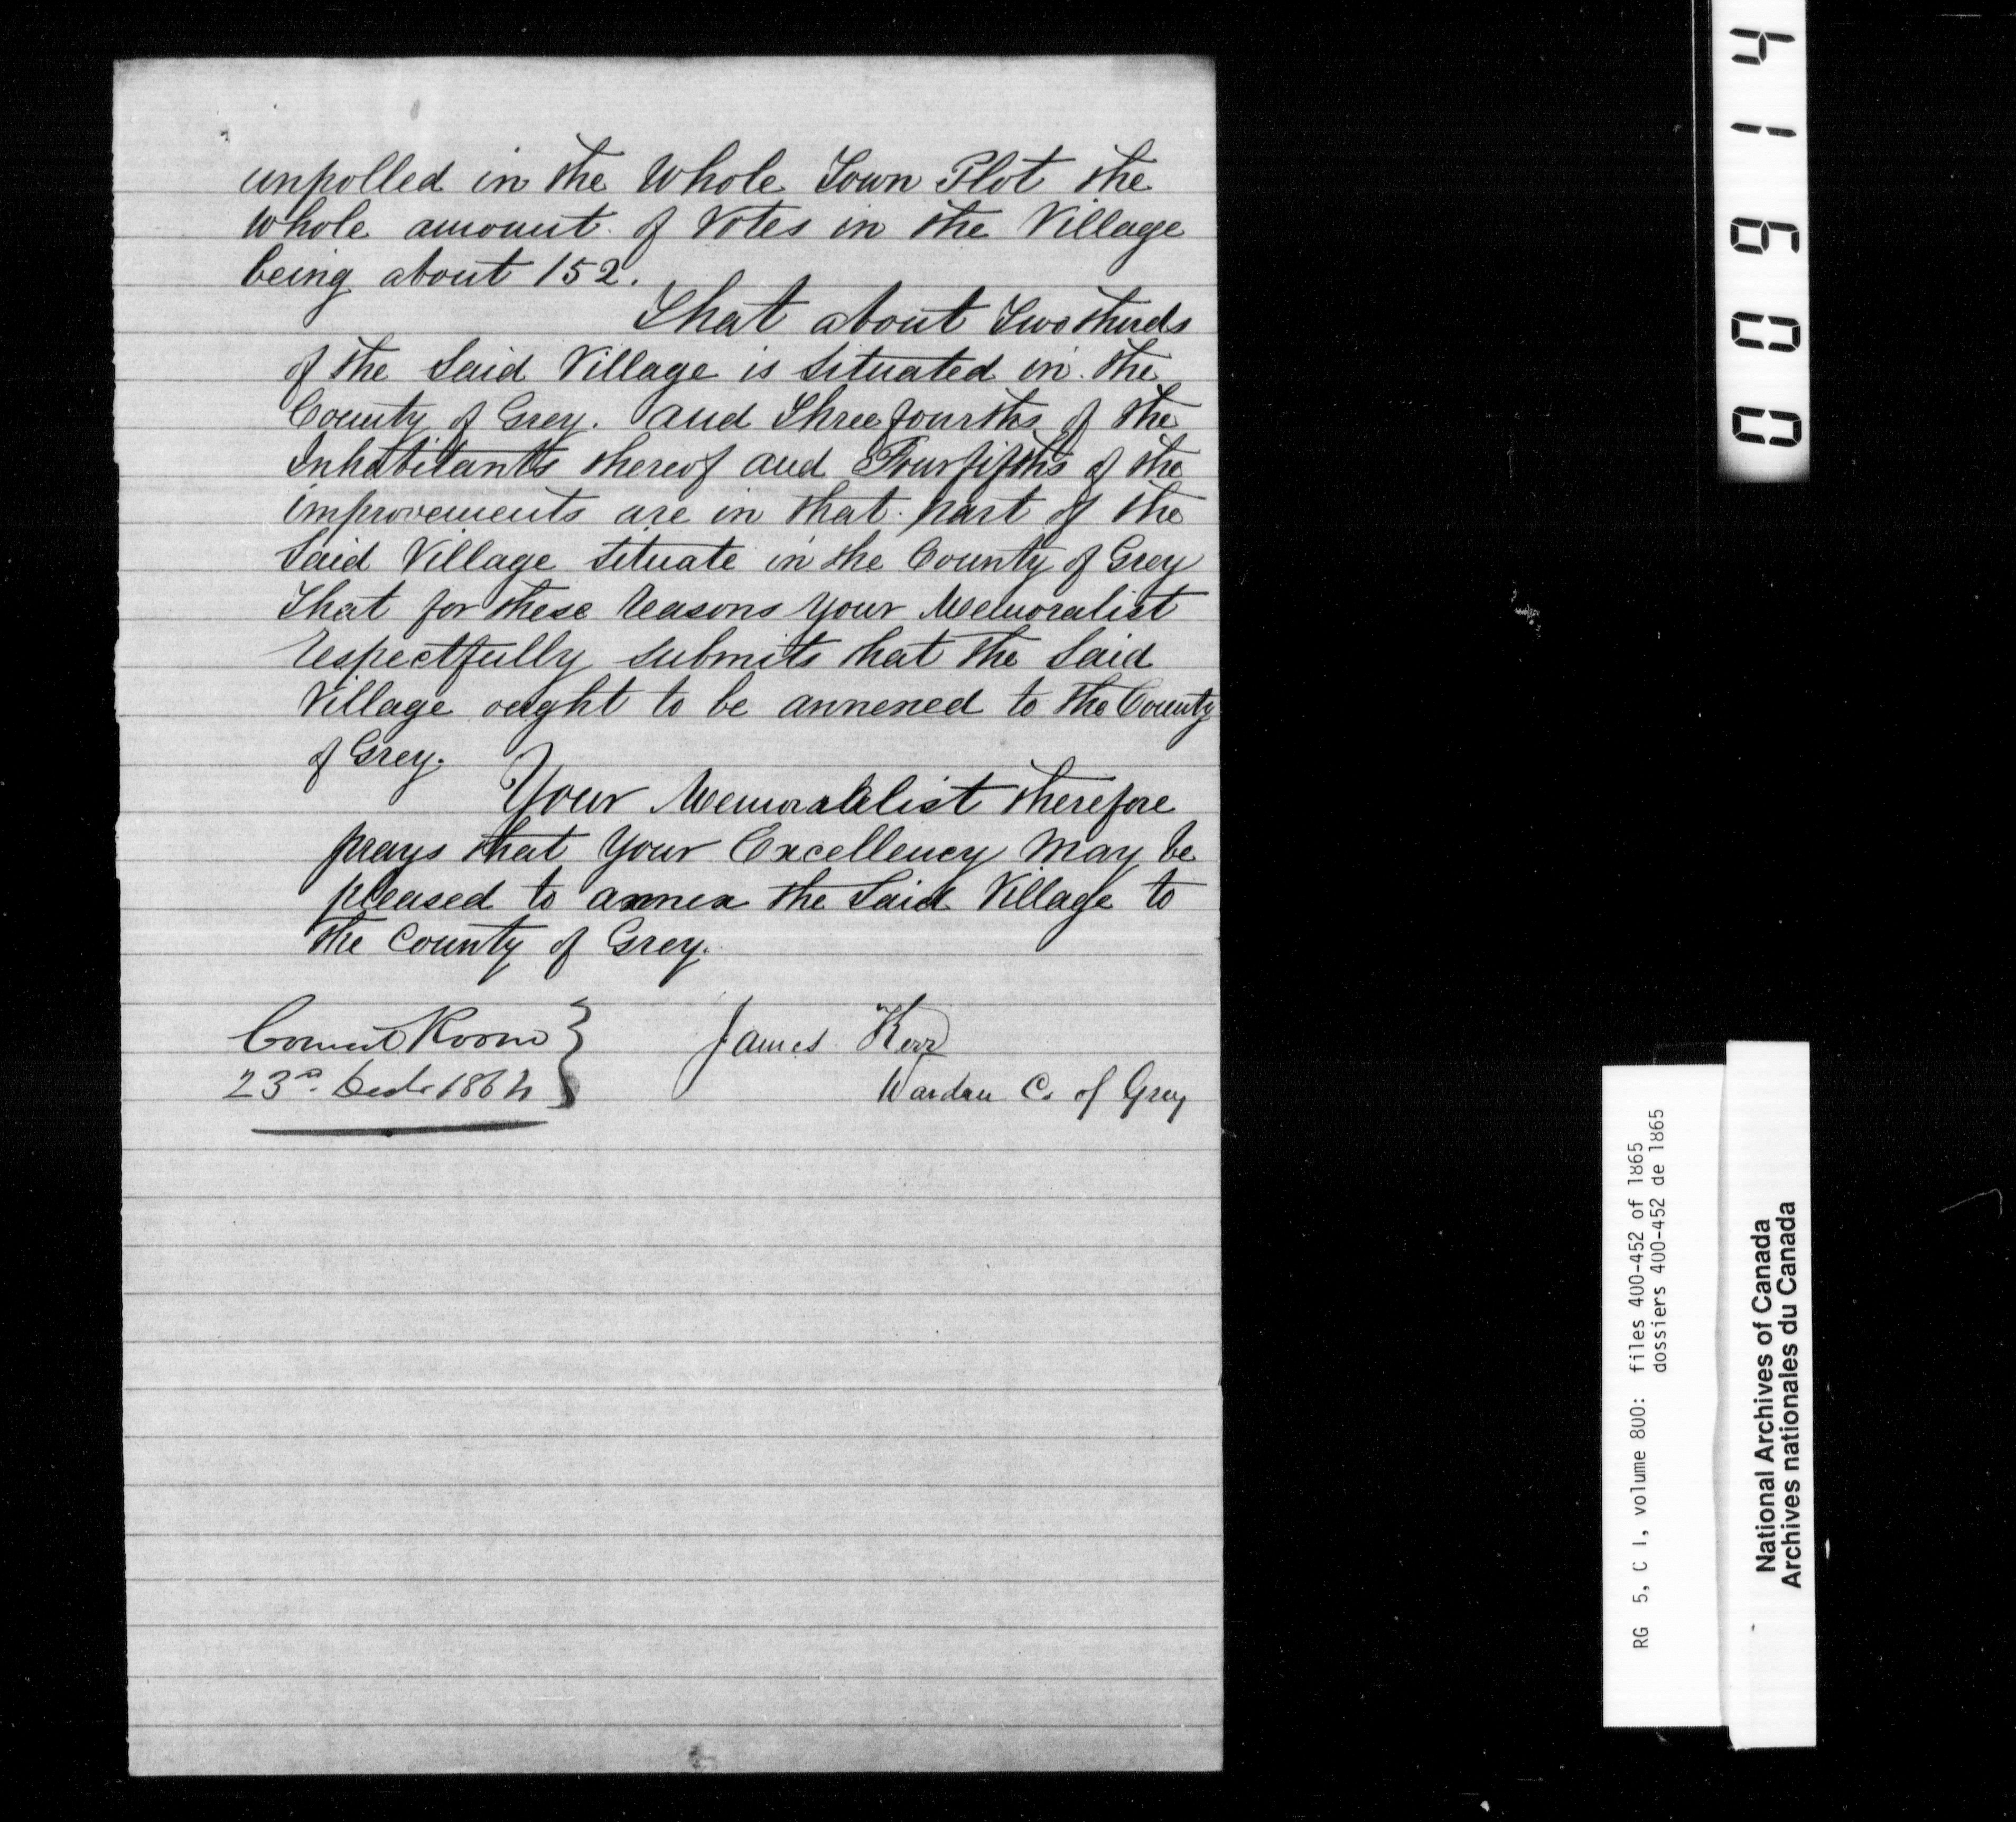 unpolled in the Whole Town Plot the
whole amount of Votes in the Village
being about 152.
That about Two thirds
of the Said Village is situated in the
County of Grey. and Three fourths of the
Inhabitants thereof and Four fifths of the
improvements are in that part of the
Said Village situate in the County of Grey
That for these reasons your Memoralist
respectfully submits that the Said
Village ought to be annexed to the County
of Grey.
Your Memoralist therefore
prays that your Excellency may be
pleased to annex the Said Village to
the County of Grey.
Council Room
23rd. 1864
James Kerr
Warden Co. of Grey
00914
RG 5, C 1, volume 800: files 400-452 of 1865
dossiers 400-452 de 1865
National Archives of Canada
Archives nationales du Canada